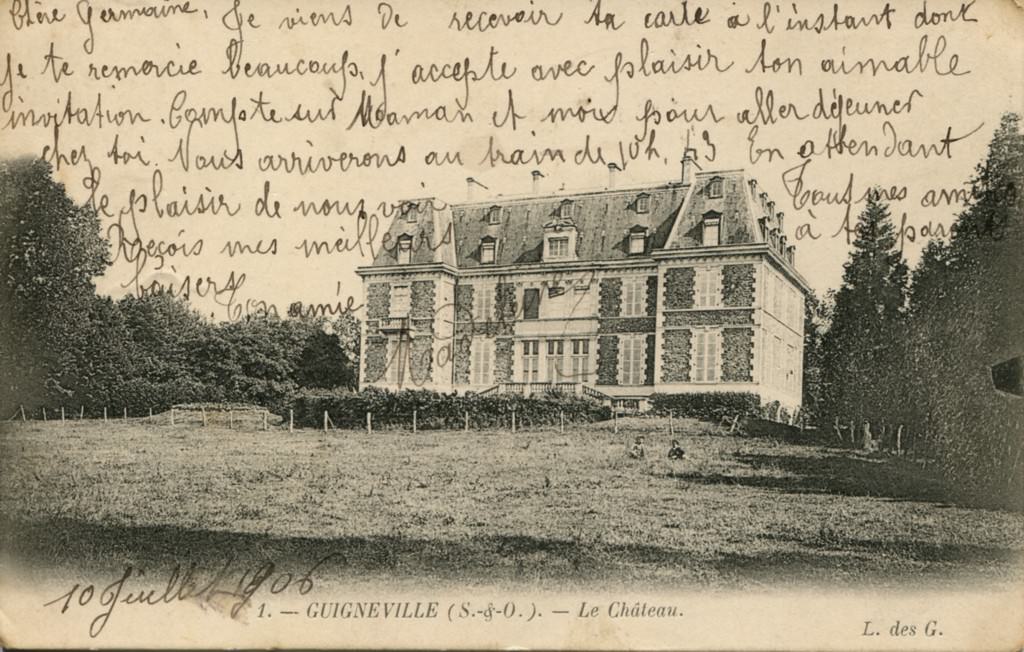 Chère Germaine, Je viens de recevoir ta carte à l'instant dont
je te remercie beaucoup, j'accepte avec plaisir ton aimable
invitation. Compte sur Maman et moi pour aller déjeuner
chez toi. Nous arriverons au train de 10h, 3 En attendant
le plaisir de nous voir Tous mes ami
Reçois mes meilleurs à tes parents
baisers
Ton amie
10 Juillet 1906
1. — GUIGNEVILLE (S.-&-O.). — Le Château.
L. des G.